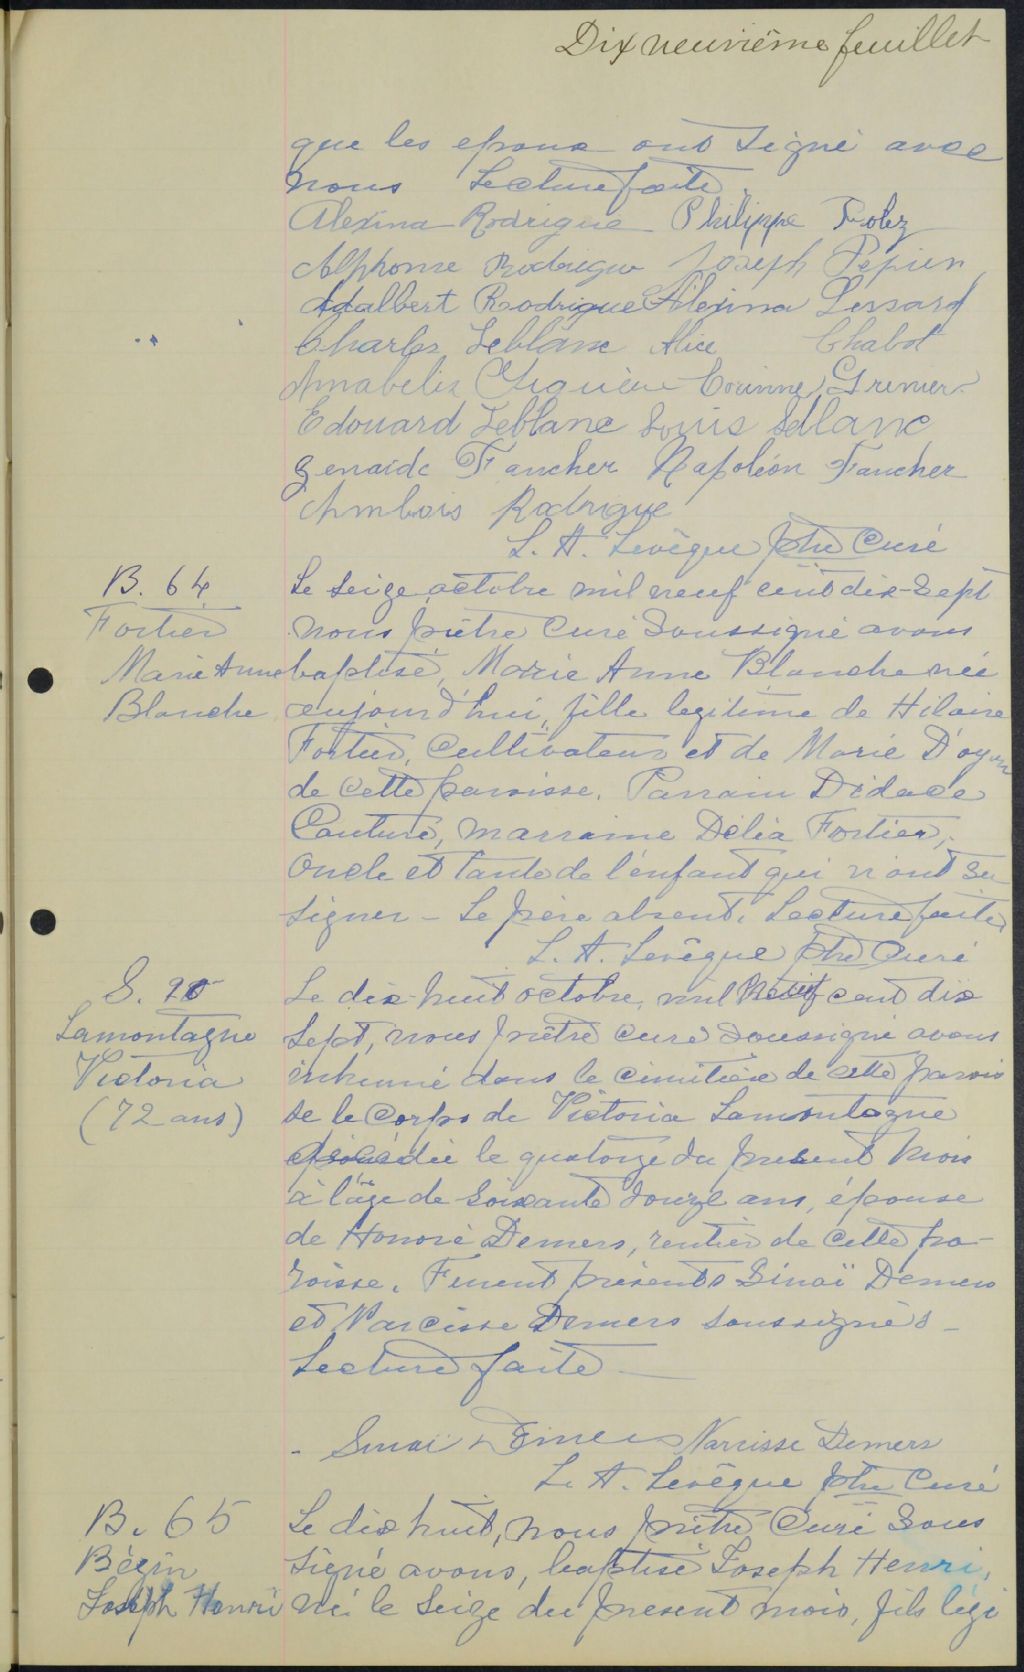 Dix neuvième feuillet
que les epoux ont Signé avec
nous Lecture faite.
Alexina Rodrigue Philippe
Alphonse Rodrigue Joseph Pepin
Adalbert Rodrigue Alexina Lessard
Charles Leblanc Alice Chabot
Annabelis Giguère Corinne Grenier
Edouard Leblanc Louis Leblanc
Zenaide Faucher Napoléon Faucher
Rodrigue
L. A. Levêque ptre Curé
B. 64
Fortier
Marie Anne
Blanche
Le Seize octobre mil neuf cent dix-Sept
nous prêtre Curé Soussigné avons
baptisé, Marie Anne Blanche née
aujourd'hui, fille legitime de Hilaire
Fortier, Cultivateur et de Marie D'oyon
de cette paroisse. Parrain Didace
Couture, marraine Délia Fortier,
Oncle et Tante de l'enfant qui n'ont su
Signer - Le père absent. Lecture faite
L. A. Levêque ptre Curé
S. 20
Lamontagne
Victoria
(72 ans)
Le dix-huit octobre, mil Neuf cent dix
Sept, nous prêtre curé Soussigné avons
inhumé dans le cimitière de cette parois
se le corps de Victoria Lamontagne
décédée le quatorze du present Mois
à l'âge de Soixante douze ans, épouse
de Honoré Demers, rentier de Cette pa-
roisse. Furent présents Sinaï Demers
et Narcisse Demers soussignés -
Lecture faite -
Sinai Demers Narcisse Demers
L. A. Levêque ptre Curé
B. 65
Bégin
Joseph Henri
Le dix huit, nous prêtre Curé Sous
Signé avons, baptisé Joseph Henri,
né le Seize du present mois, fils légi